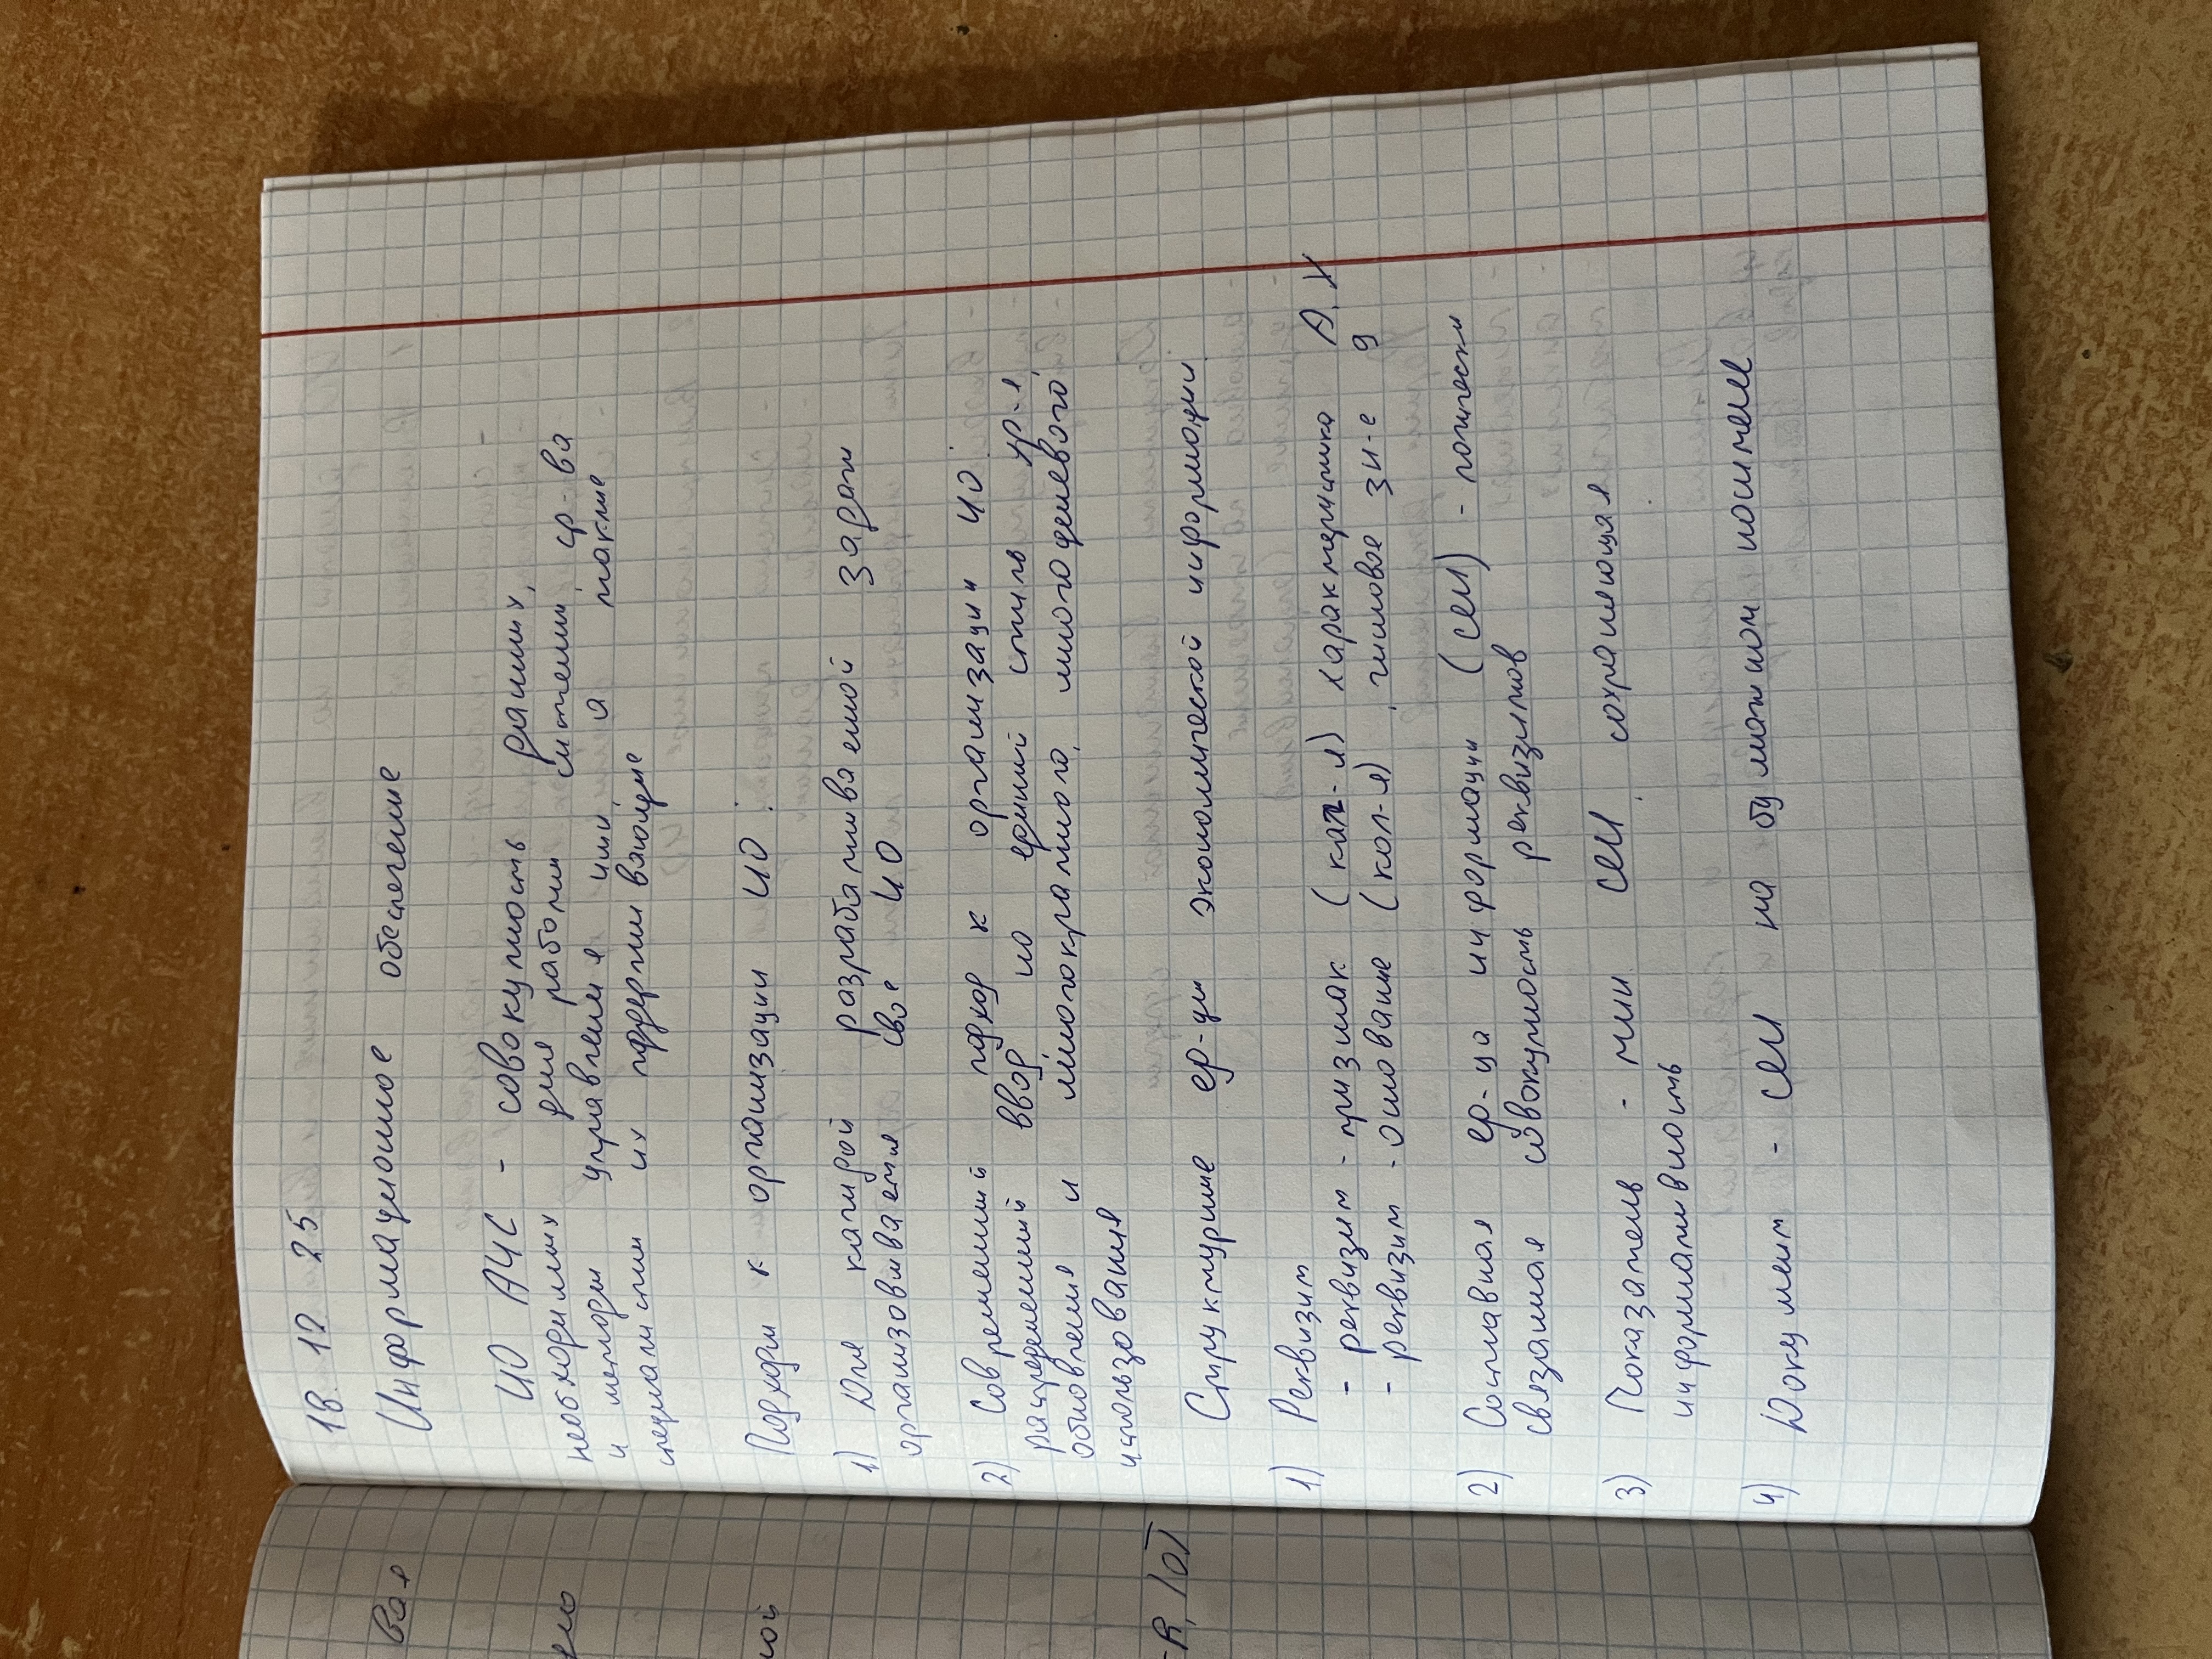 18 12 25
Информационное обеспечение
ИО АЧС - совокупность данных,
необходимых для работы системы, ср-ва
и методы управления ими, а также
специалисты их поддерживающие
Подходы к организации ИО:
1) Для каждой разрабатываемой задачи
организовывается свое ИО
2) Современный подход к организации ИО:
распределенный ввод но единый стиль хр-я,
обновления и многократного, многоцелевого
использования
Структурные ед-цы экономической информации
1) Реквизит
- реквизит - признак (кач-я) характеристика А, Х
- реквизит - основание (кол-я), числовое зн-е 9
2) Составная ед-ца информации (СЕИ) - логически
связанная совокупность реквизитов
3) Показатель - мин СЕИ, сохраняющая
информативность
4) Документ - СЕИ на бумажном носителе
вая
ной
-R, IOT